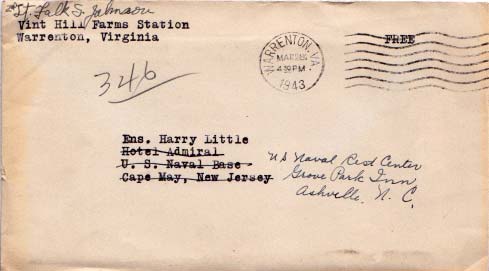 Lt. Falk S. Johnson
Vint Hill Farms Station
Warrenton, Virginia
WARRENTON, VA.
4 30 PM
1943
FREE
346
Ens. Harry Little
Hotel Admiral
U. S. Naval Base
Cape May, New Jersey
US Naval Rest Center
Grove Park Inn
Ashville, N. C.